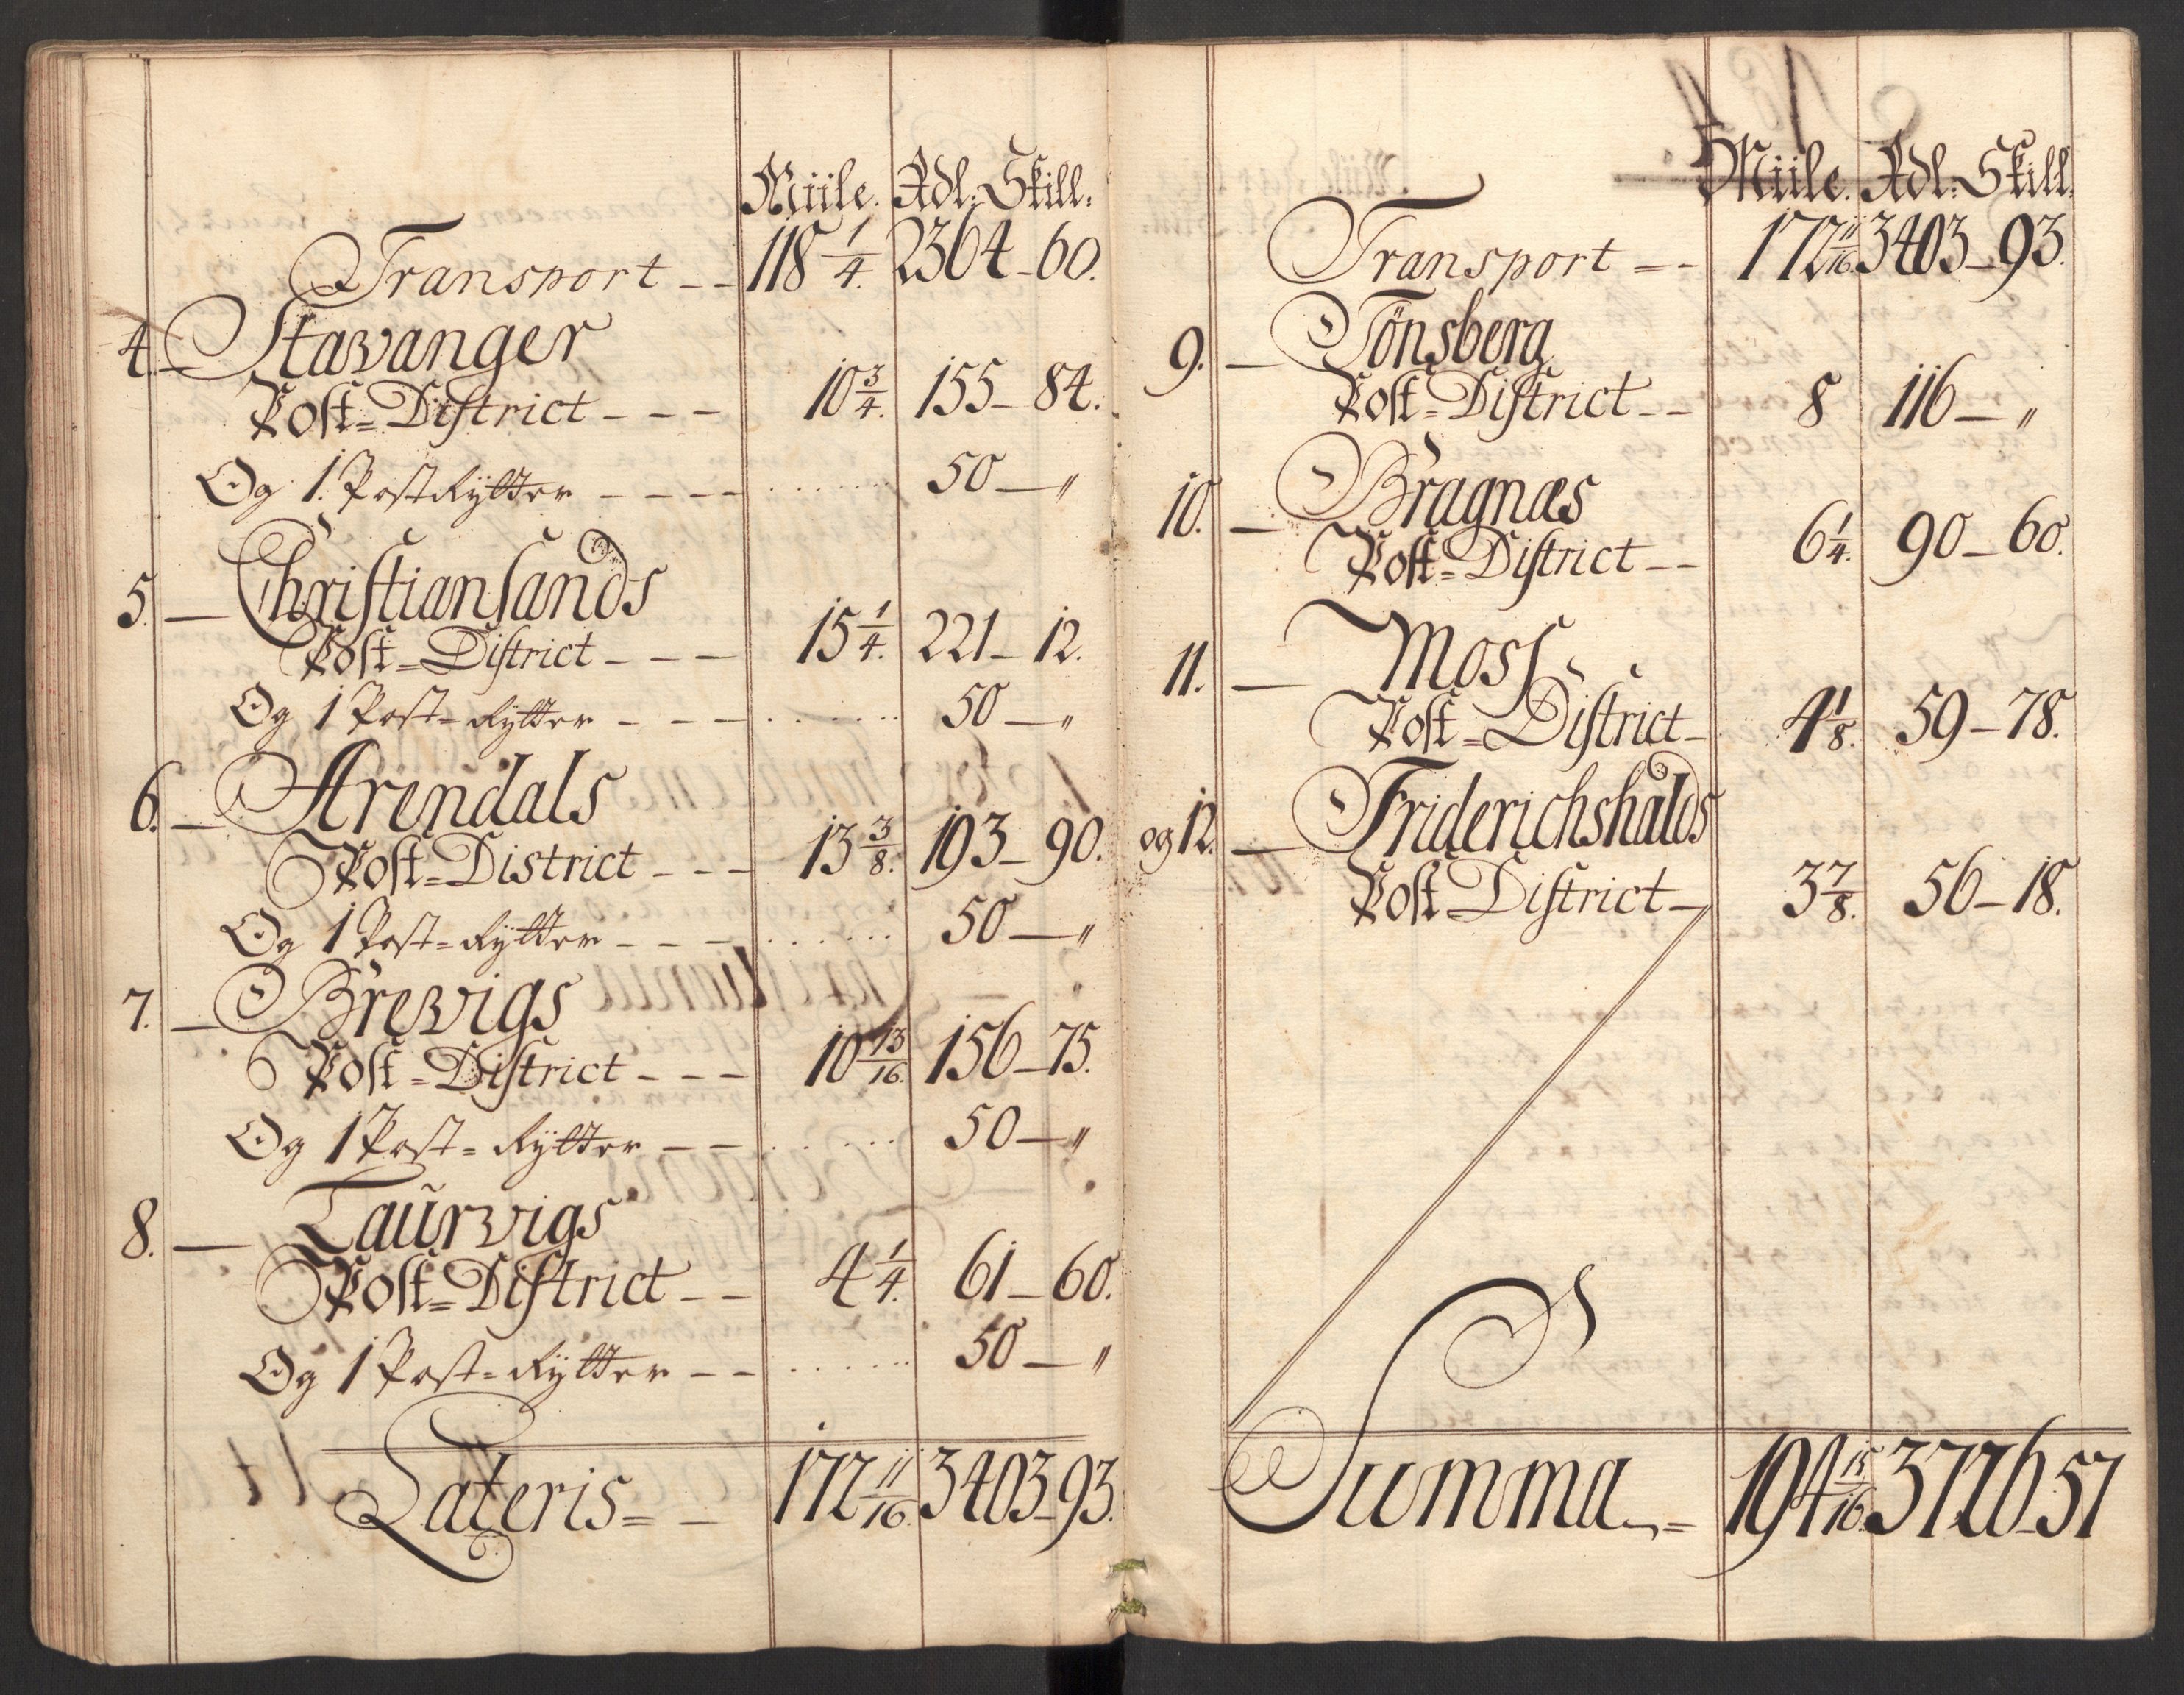 Miile. Rdl: Skill:
Transport - - 118 1/4. 2364 - 60.
4. - Stavanger
Post = District - - - 10 3/4. 155 - 84.
Og 1. Post Rÿtter - - - - 50 - "
5. - Christiansands
Post = District - - - 15 1/4. 221 - 12.
Og 1 Post = Rÿtter - - - 50 - "
6. - Arendals
Post = District - - - 13 3/8. 193 - 90.
Og 1 Post = Rÿtter - - - 50 - "
7. - Brevigs
Post = District - - - 10 13/16. 156 - 75.
Og 1 Post = Rÿtter - - 50 - "
8. - Laurvigs
Post = District - - 4 1/4. 61 - 60.
Og 1 Post = Rÿtter - - 50 - "
Lateris = - 172 11/16. 3403 - 93.
Miile. Rdl: Skill:
Transport = - 172 11/16. 3403 - 93.
9. - Tönsberg
Post = District - - 8 116 - "
10. - Bragnæs
Post = District - - 6 1/4. 90 - 60.
11. - Moss
Post = District - 4 1/8. 59 - 78.
og 12. - Friderichshalds
Post District - 3 7/8. 56 - 18.
Summa - = 194 15/16. 3726 - 57